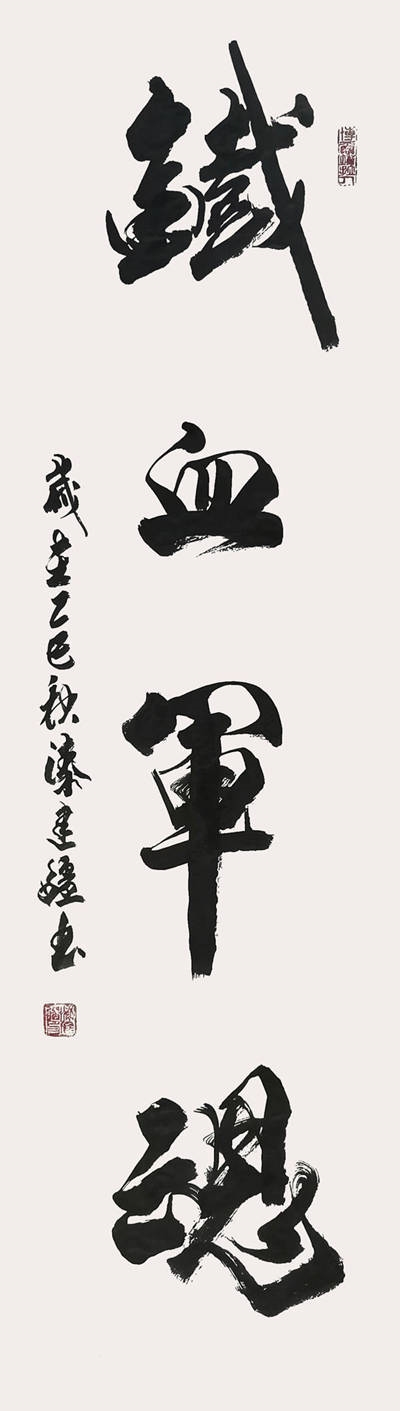 鐵血軍魂
歲在乙巳秋建疆書